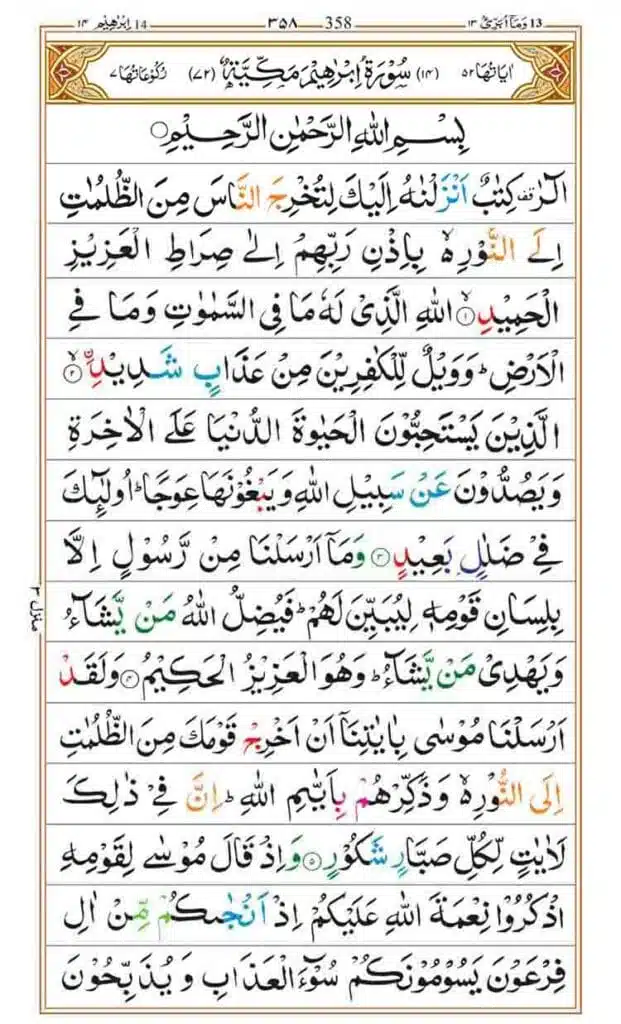 14 اِبْرٰهِيْم ١٤ 358 ٣٥٨ 13 وَمَآ اُبَرِّئُ ١٣
اٰيَاتُهَا ٥٢ (١٤) سُوْرَةُ اِبْرٰهِيْمَ مَكِّيَّةٌ (٧٢) رُكُوْعَاتُهَا ٧
بِسْمِ اللّٰهِ الرَّحْمٰنِ الرَّحِيْمِ ○
الٓرٰ قف كِتٰبٌ اَنْزَلْنٰهُ اِلَيْكَ لِتُخْرِجَ النَّاسَ مِنَ الظُّلُمٰتِ
اِلَى النُّوْرِ ۙ۬ بِاِذْنِ رَبِّهِمْ اِلٰى صِرَاطِ الْعَزِيْزِ
الْحَمِيْدِ ۙ﴿١﴾ اللّٰهِ الَّذِىْ لَهٗ مَا فِى السَّمٰوٰتِ وَمَا فِى
الْاَرْضِ ؕ وَوَيْلٌ لِّلْكٰفِرِيْنَ مِنْ عَذَابٍ شَدِيْدِ ۙ﴿٢﴾
الَّذِيْنَ يَسْتَحِبُّوْنَ الْحَيٰوةَ الدُّنْيَا عَلَى الْاٰخِرَةِ
وَيَصُدُّوْنَ عَنْ سَبِيْلِ اللّٰهِ وَيَبْغُوْنَهَا عِوَجًا ؕ اُولٰٓئِكَ
فِىْ ضَلٰلٍۭ بَعِيْدٍ ﴿٣﴾ وَمَآ اَرْسَلْنَا مِنْ رَّسُوْلٍ اِلَّا
بِلِسَانِ قَوْمِهٖ لِيُبَيِّنَ لَهُمْ ؕ فَيُضِلُّ اللّٰهُ مَنْ يَّشَآءُ
وَيَهْدِىْ مَنْ يَّشَآءُ ؕ وَهُوَ الْعَزِيْزُ الْحَكِيْمُ ﴿٤﴾ وَلَقَدْ
اَرْسَلْنَا مُوْسٰى بِاٰيٰتِنَآ اَنْ اَخْرِجْ قَوْمَكَ مِنَ الظُّلُمٰتِ
اِلَى النُّوْرِ ۙ۬ وَذَكِّرْهُمْ بِاَيّٰىمِ اللّٰهِ ؕ اِنَّ فِىْ ذٰلِكَ
لَاٰيٰتٍ لِّكُلِّ صَبَّارٍ شَكُوْرٍ ﴿٥﴾ وَاِذْ قَالَ مُوْسٰى لِقَوْمِهِ
اذْكُرُوْا نِعْمَةَ اللّٰهِ عَلَيْكُمْ اِذْ اَنْجٰىكُمْ مِّنْ اٰلِ
فِرْعَوْنَ يَسُوْمُوْنَكُمْ سُوْٓءَ الْعَذَابِ وَيُذَبِّحُوْنَ
منزل ٣